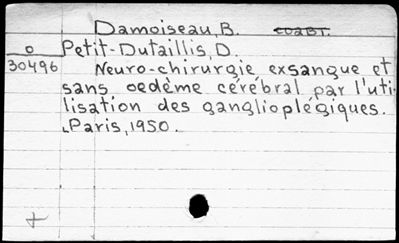 Damoiseau, B.
o Petit-Dutaillis, D.
30496 Neuro-chirurgie exsangue et
sans oedème cérébral par l'uti-
lisation des ganglioplégiques.
Paris, 1950.